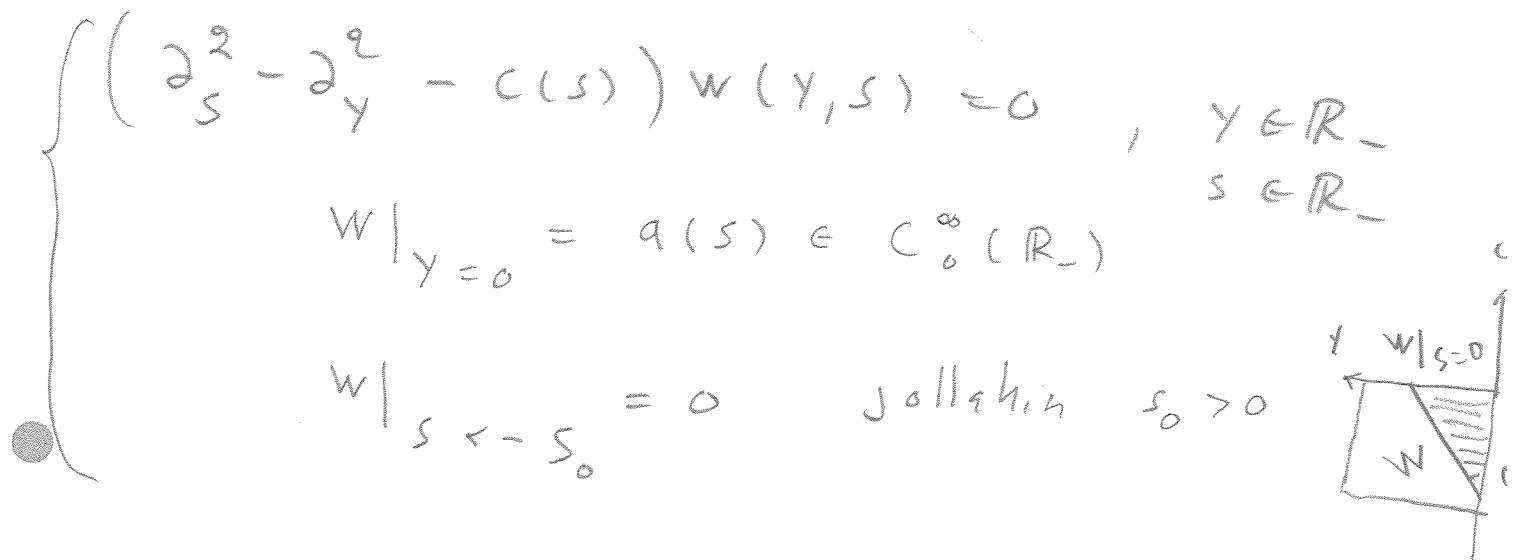 ( ∂_s^2 - ∂_y^2 - c(s) ) w(y,s) = 0 , y ∈ ℝ_-
s ∈ ℝ_-
w|_{y=0} = a(s) ∈ C_0^∞(ℝ_-)
w|_{s<-s_0} = 0 jollakin s_0 > 0
y w|_{s=0}
w